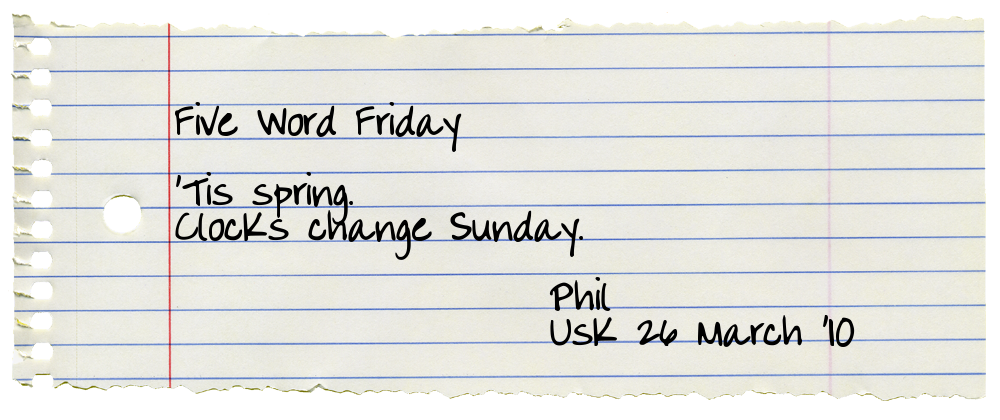 Five Word Friday
'Tis spring.
Clocks change Sunday.
Phil
Usk 26 March '10